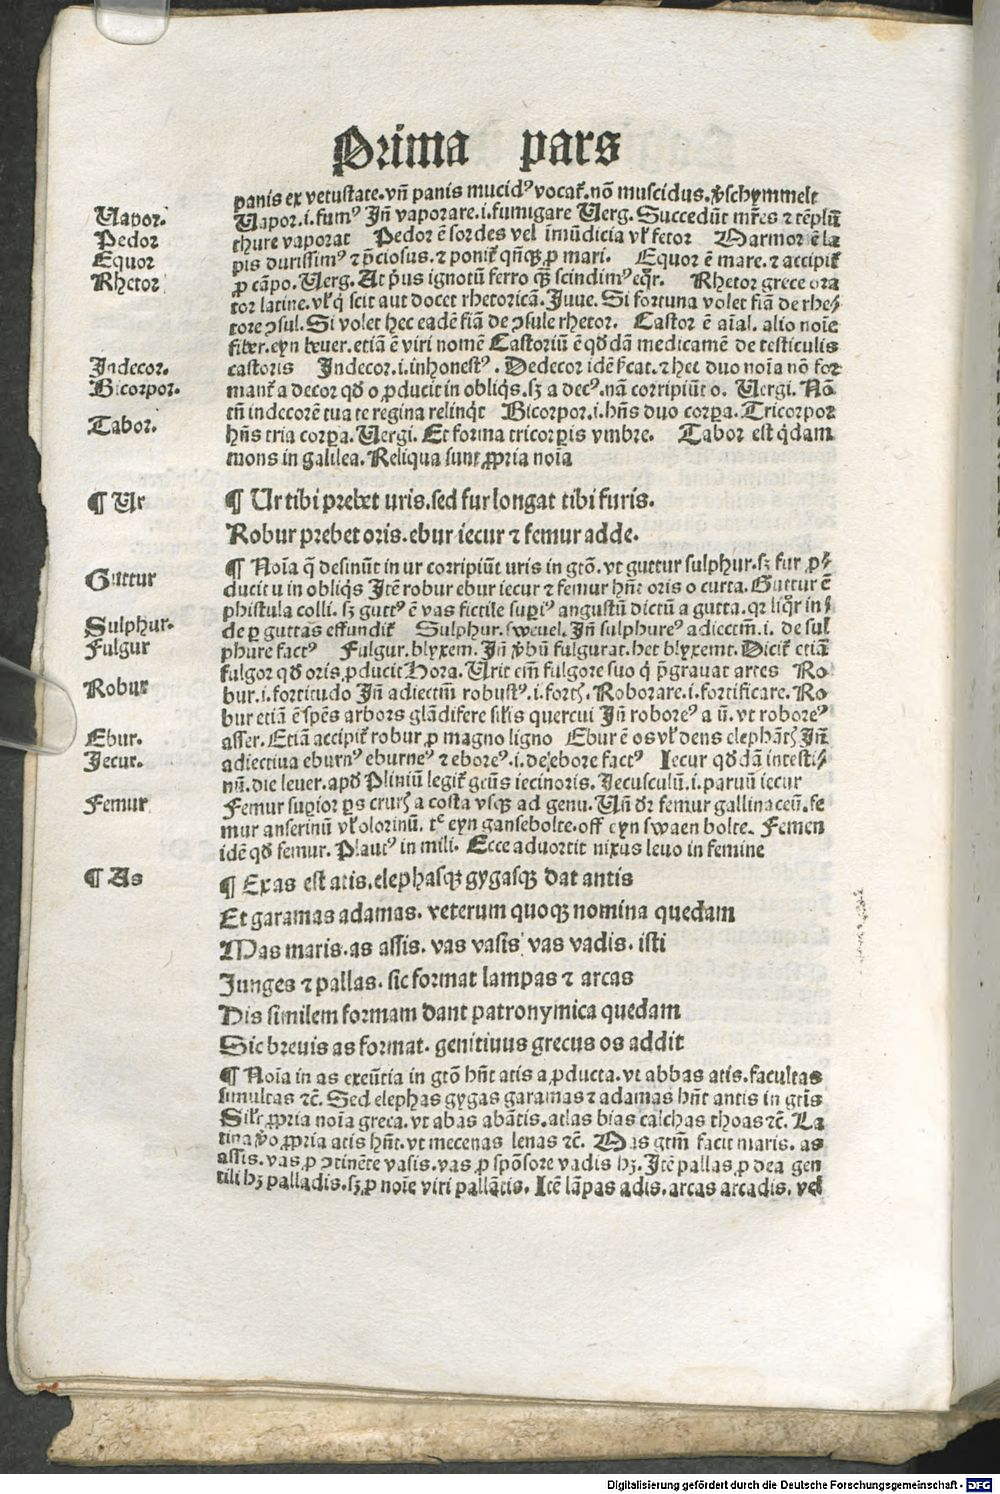 Prima pars
panis ex vetustate. vn̄ panis mucidꝰ vocat᷑. nō muscidus. v̓schymmelt
Vapor.
Vapor .i. fumꝰ Jn̄ vaporare .i. fumigare Verg. Succedūt mr̄es ⁊ tēplū
Pedor
thure vaporat Pedor ē sordes vel īmūdicia vl̓ fetor Marmor ē la
Equor
pis durissimꝰ ⁊ p̄ciosus. ⁊ ponit᷑ qn̄qꝫ ꝓ mari. Equor ē mare. ⁊ accipit᷑
Rhetor
ꝓ cāpo. Verg. At p̓us ignotū ferro qꝫ scindimꝰ eq̄r. Rhetor grece ora
tor latine. vl̓ q̓ scit aut docet rhetoricā. Juue. Si fortuna volet fiā de rhe⸗
tore ↄsul. Si volet hec eadē fiā de ↄsule rhetor. Castor ē aīal. alio noīe
fiber. eyn beuer. etiā ē viri nomē Castoriū ē qd̓dā medicamē de testiculis
Indecor.
castoris Indecor .i. inhonestꝰ. Dedecor idē s̓cat. ⁊ hec duo noīa nō for
Bicorpor.
mant᷑ a decor qd̓ o ꝓducit in obliq̓s. sꝫ a decꝰ. nā corripiūt o. Vergi. Nō
tn̄ indecorē tua te regina relinq̓t Bicorpor .i. hn̄s duo corꝑa. Tricorpor
Tabor.
hn̄s tria corꝑa. Vergi. Et forma tricorꝑis vmbre. Tabor est q̓dam
mons in galilea. Reliqua sunt ꝓpria noīa
¶ Ur
¶ Ur tibi prebet uris. sed fur longat tibi furis.
Robur prebet oris. ebur iecur ⁊ femur adde.
¶ Noīa q̄ desinūt in ur corripiūt uris in gtō. vt guttur sulphur. sꝫ fur ꝓ⸗
Guttur
ducit u in obliq̓s Jtē robur ebur iecur ⁊ femur hn̄t oris o curta. Guttur ē
phistula colli. sꝫ guttꝰ ē vas fictile suꝑiꝰ angustū dictū a gutta. qr liq̄r in⸗
Sulphur.
de ꝑ guttas effundit᷑ Sulphur. sweuel. Jn̄ sulphureꝰ adiectm̄ .i. de sul
Fulgur
phure factꝰ Fulgur. blyxem. Jn̄ v̓bū fulgurat. het blyxemt. Dicit᷑ etiā
fulgor qd̓ oris ꝓducit Hora. Vrit em̄ fulgore suo q̓ p̄grauat artes Ro
Robur
bur .i. fortitudo Jn̄ adiectm̄ robustꝰ .i. fortꝭ. Roborare .i. fortificare. Ro
bur etiā ē sp̄es arbor̄s glādifere sil̓is quercui Jn̄ roboreꝰ a ū. vt roboreꝰ
Ebur.
asser. Etiā accipit᷑ robur ꝓ magno ligno Ebur ē os vl̓ dens elephātꝭ Jn̄
Jecur.
adiectiua eburnꝰ eburneꝰ ⁊ eboreꝰ .i. de ebore factꝰ Iecur qd̓dā intesti⸗
nū. die leuer. apd̓ Pliniū legit᷑ gen̄s iecinoris. Jecusculū .i. paruū iecur
Femur
Femur suꝑior ꝑs crurꝭ a costa vsqꝫ ad genu. Vn̄ dr̄ femur gallinaceū. fe
mur anserinū vl̓ olorinū. tͨ eyn gansebolte. off eyn swaen bolte. Femen
idē qd̓ femur. Plautꝰ in mili. Ecce aduortit nixus leuo in femine
¶ As
¶ Exas est atis. elephasqꝫ gygasqꝫ dat antis
Et garamas adamas. veterum quoqꝫ nomina quedam
Mas maris. as assis. vas vasis vas vadis. isti
Junges ⁊ pallas. sic format lampas ⁊ arcas
Dis similem formam dant patronymica quedam
Sic breuis as format. genitiuus grecus os addit
¶ Noīa in as exeūtia in gtō hn̄t atis a ꝓducta. vt abbas atis. facultas
simultas ⁊c̄. Sed elephas gygas garamas ⁊ adamas hn̄t antis in gtīs
Sil̓r ꝓpria noīa greca. vt abas abātis. atlas bias calchas thoas ⁊c̄. La
tina v̓o ꝓpria atis hn̄t. vt mecenas lenas ⁊c̄. Mas gtm̄ facit maris. as
assis. vas ꝓ ↄtinēte vasis. vas ꝓ spōsore vadis hꝫ. Jtē pallas ꝓ dea gen
tili hꝫ palladis. sꝫ ꝓ noīe viri pallātis. Itē lāpas adis. arcas arcadis. vel
Digitalisierung gefördert durch die Deutsche Forschungsgemeinschaft - DFG